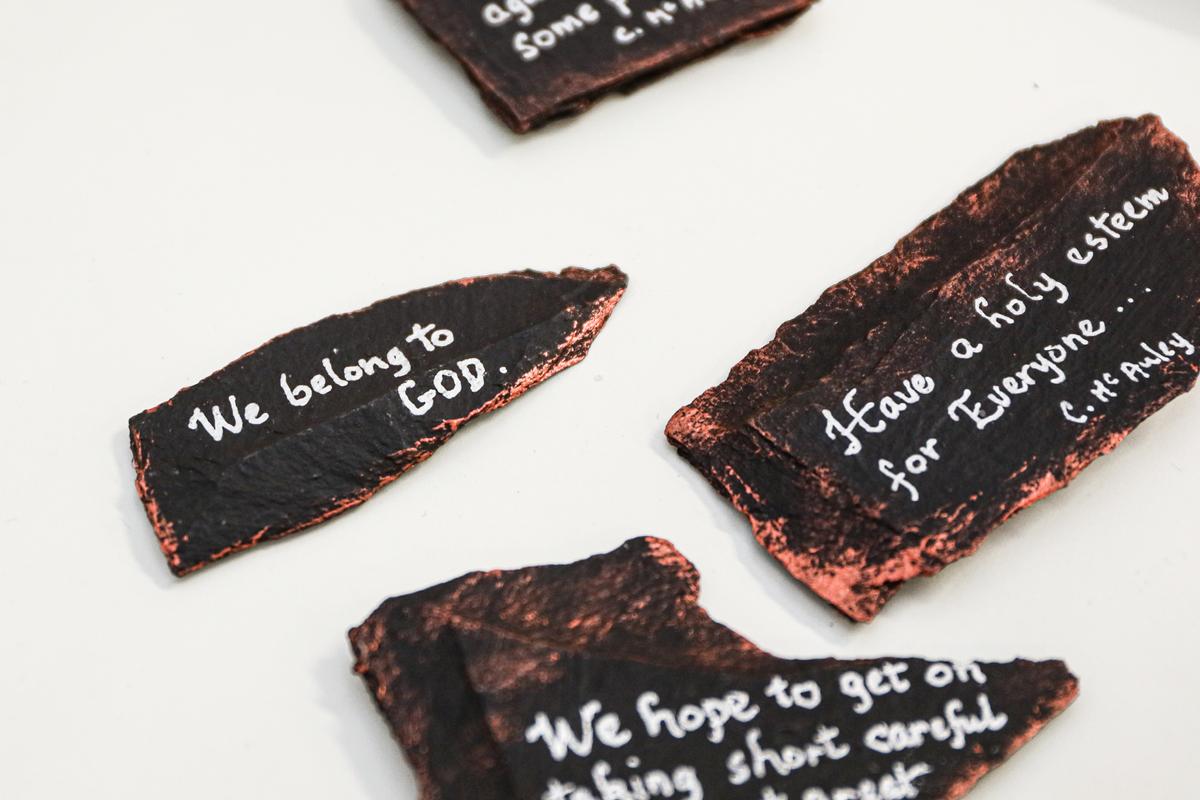 some
We belong to
GOD.
Have a holy esteem
for Everyone ....
C. Mc Auley
We hope to get on
taking short careful